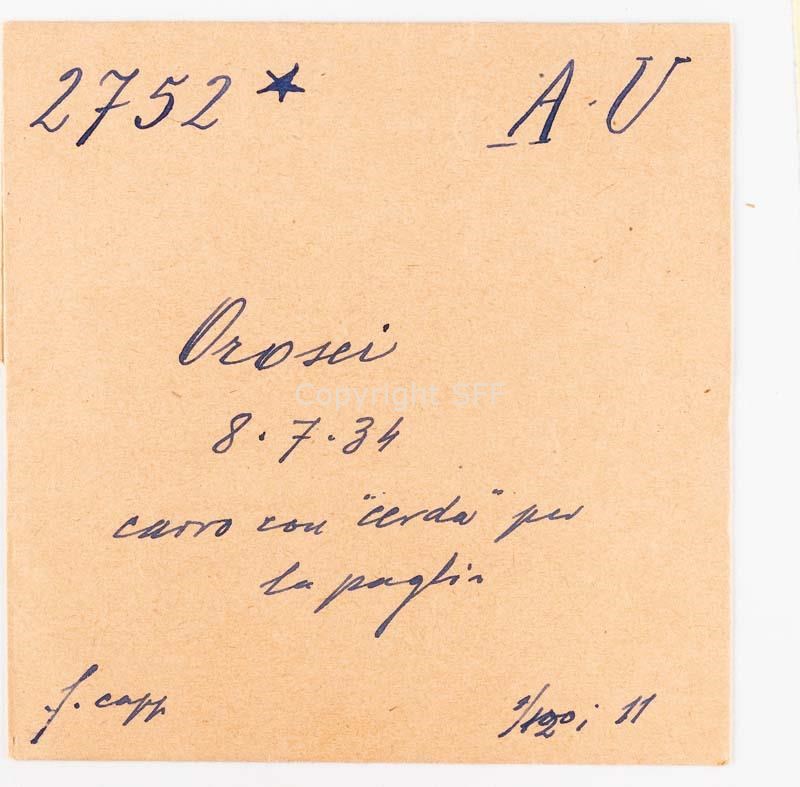 2752 * A.U
Orosei
Copyright SFF
8.7.34
carro con "cerda" per
la paglia
f. capp
1/120; 11